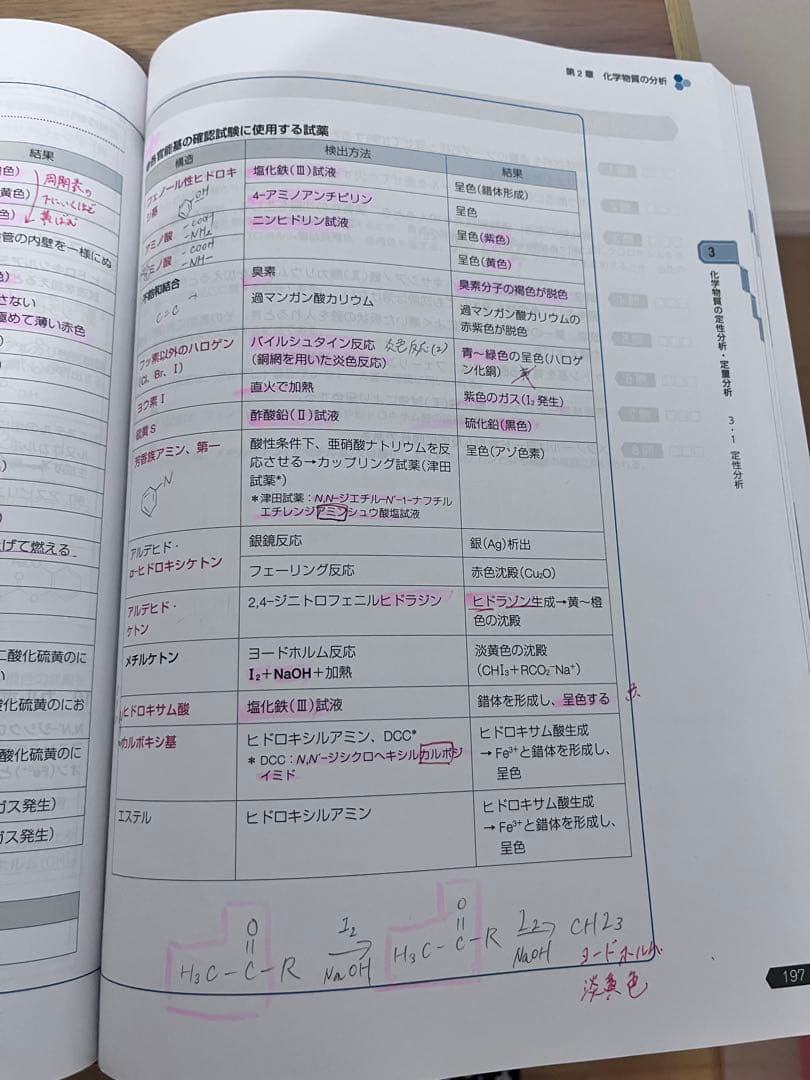 第2章 化学物質の分析
結果
黄色)
周期表の
下にいくほど
色)
管の内壁を一様にぬ
さない
極めて薄い赤色
げて燃える
二酸化硫黄のに
い
酸化硫黄のにお
酸化硫黄のに
ガス発生)
ガス発生)
各官能基の確認試験に使用する試薬
構造
検出方法
結果
フェノール性ヒドロキ
シ基
OH
塩化鉄(Ⅲ)試液
呈色(錯体形成)
4-アミノアンチピリン
呈色
アミノ酸
-COOH
-NH2
ニンヒドリン試液
呈色(紫色)
イミノ酸
-COOH
-NH-
呈色(黄色)
不飽和結合
C=C
臭素
臭素分子の褐色が脱色
過マンガン酸カリウム
過マンガン酸カリウムの
赤紫色が脱色
フッ素以外のハロゲン
(Cl、Br、I)
バイルシュタイン反応
炎色反応(2)
(銅網を用いた炎色反応)
青~緑色の呈色(ハロゲ
ン化銅)
ヨウ素I
直火で加熱
紫色のガス(I2発生)
硫黄S
酢酸鉛(Ⅱ)試液
硫化鉛(黒色)
芳香族アミン、第一
N
酸性条件下、亜硝酸ナトリウムを反
応させる→カップリング試薬(津田
試薬*)
*津田試薬:N,N-ジエチル-N'-1-ナフチル
エチレンジアミンシュウ酸塩試液
呈色(アゾ色素)
アルデヒド・
α-ヒドロキシケトン
銀鏡反応
銀(Ag)析出
フェーリング反応
赤色沈殿(Cu2O)
アルデヒド・
ケトン
2,4-ジニトロフェニルヒドラジン
ヒドラゾン生成→黄~橙
色の沈殿
メチルケトン
ヨードホルム反応
I2+NaOH+加熱
淡黄色の沈殿
(CHI3+RCO2-Na+)
ヒドロキサム酸
塩化鉄(Ⅲ)試液
錯体を形成し、呈色する
カルボキシ基
ヒドロキシルアミン、DCC*
* DCC:N,N'-ジシクロヘキシルカルボジ
イミド
ヒドロキサム酸生成
→Fe3+と錯体を形成し、
呈色
エステル
ヒドロキシルアミン
ヒドロキサム酸生成
→Fe3+と錯体を形成し、
呈色
3
化学物質の定性分析・定量分析
3・1 定性分析
O
H3C-C-R
I2
NaOH
O
H3C-C-R
I2
NaOH
CHI3
ヨードホルム
淡黄色
197